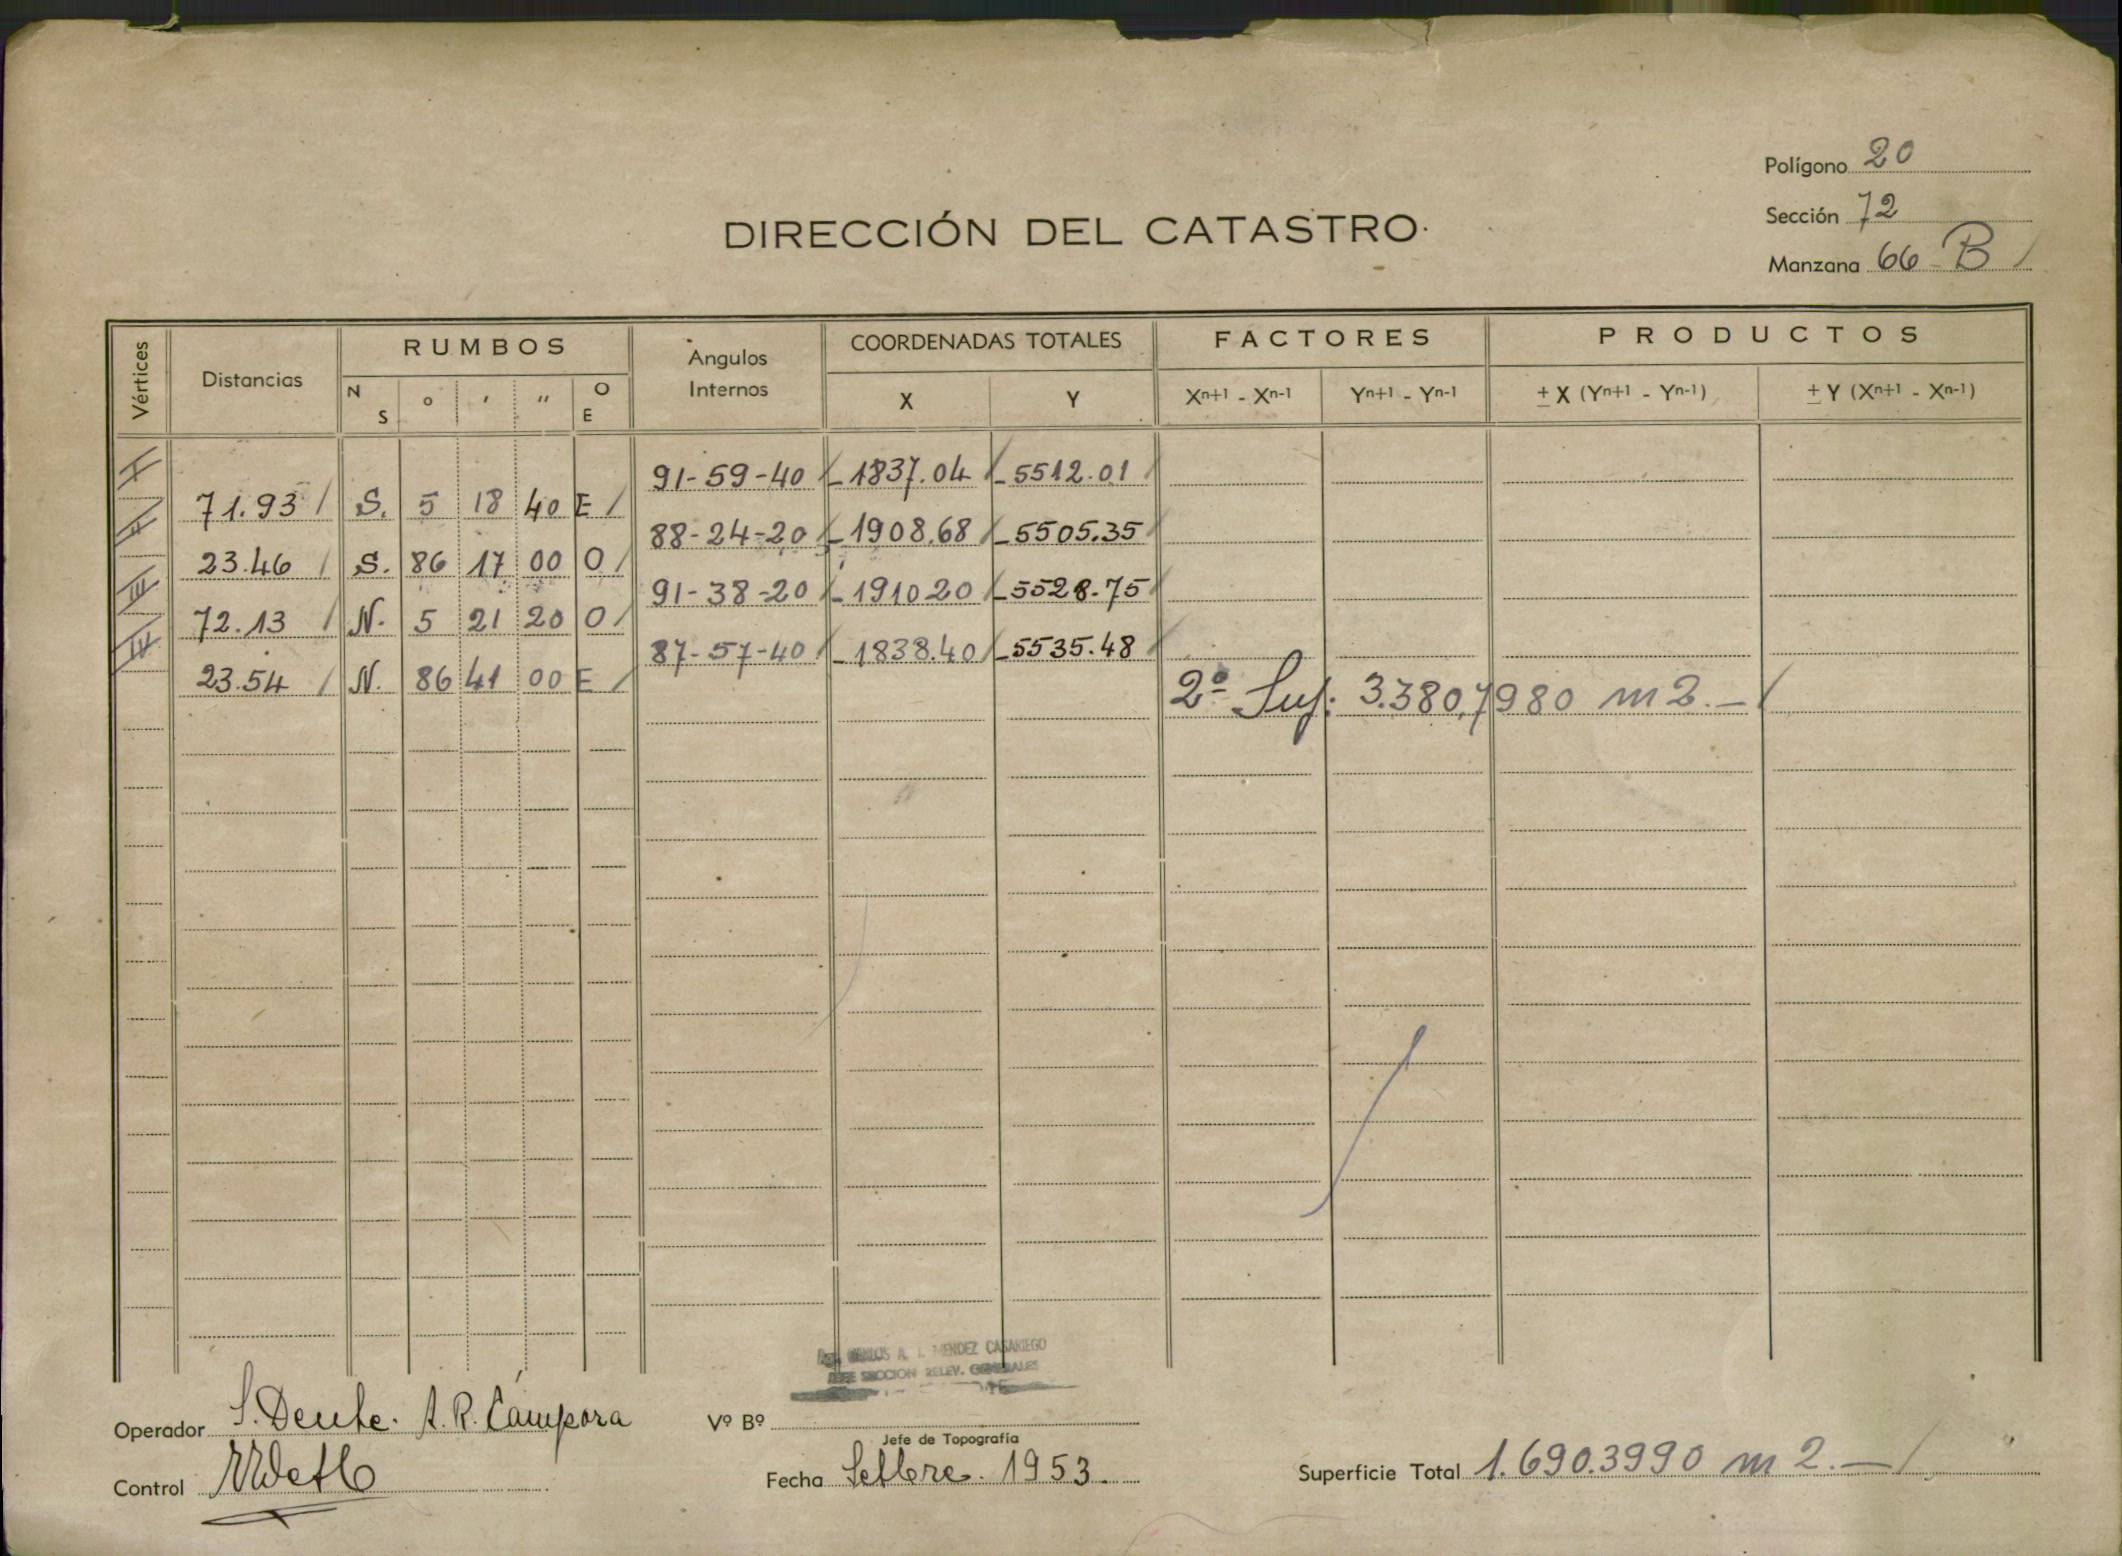 Polígono 20
Sección 72
DIRECCIÓN DEL CATASTRO.
Manzana 66 B /
Vértices Distancias RUMBOS Angulos Internos COORDENADAS TOTALES FACTORES PRODUCTOS
N S ° ' " O E X Y Xn+1 - Xn-1 Yn+1 - Yn-1 ± X (Yn+1 - Yn-1) ± Y (Xn+1 - Xn-1)
I 91-59-40 / -1837.04 / -5512.01 /
71.93 / S. 5 18 40 E /
II 88-24-20 / -1908.68 / -5505.35 /
23.46 / S. 86 17 00 O /
III 91-38-20 / -191020 / -5528.75 /
72.13 / N. 5 21 20 O /
IV 87-57-40 / -1838.40 / -5535.48 /
23.54 / N. 86 41 00 E /
2º Suf: 3.380,7980 m2.- /
CARLOS A. L. MENDEZ CASARIEGO
JEFE SECCION RELEV. GENERALES
Operador S. Deube. A.R. Cámpora Vº Bº
Jefe de Topografía
Control Fecha Setbre. 1953. Superficie Total 1.690.3990 m2.- /